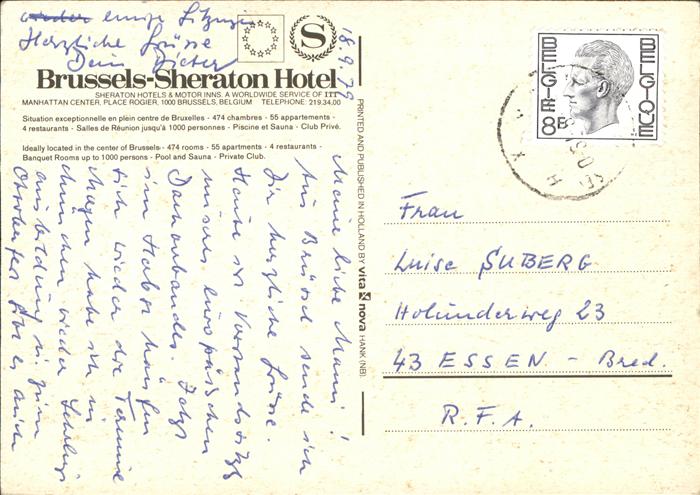 Brussels-Sheraton Hotel
SHERATON HOTELS & MOTOR INNS. A WORLDWIDE SERVICE OF ITT
MANHATTAN CENTER, PLACE ROGIER, 1000 BRUSSELS, BELGIUM TELEPHONE: 219.34.00
Situation exceptionnelle en plein centre de Bruxelles - 474 chambres - 55 appartements -
4 restaurants - Salles de Réunion jusqu'à 1000 personnes - Piscine et Sauna - Club Privé.
Ideally located in the center of Brussels - 474 rooms - 55 apartments - 4 restaurants -
Banquet Rooms up to 1000 persons - Pool and Sauna - Private Club.
S
18.9.79
Meine liebe Mami!
Aus Brüssel sende ich
Dir herzliche Grüsse.
Heute ist Vorstandssitzg
unseres europäischen
Dachverbandes. Jetzt
im Herbst häufen
sich wieder die Termine
Morgen habe ich in
München wieder
ausbildung u. zum
Oktoberfest gibt es auch
einige Sitzungen
Herzliche Grüsse
Dein Dieter
PRINTED AND PUBLISHED IN HOLLAND BY vita nova HANK (NB).
BELGIE 8F BELGIQUE
Frau
Luise SUBERG
Holunderweg 23
43 ESSEN - Bred.
R.F.A.